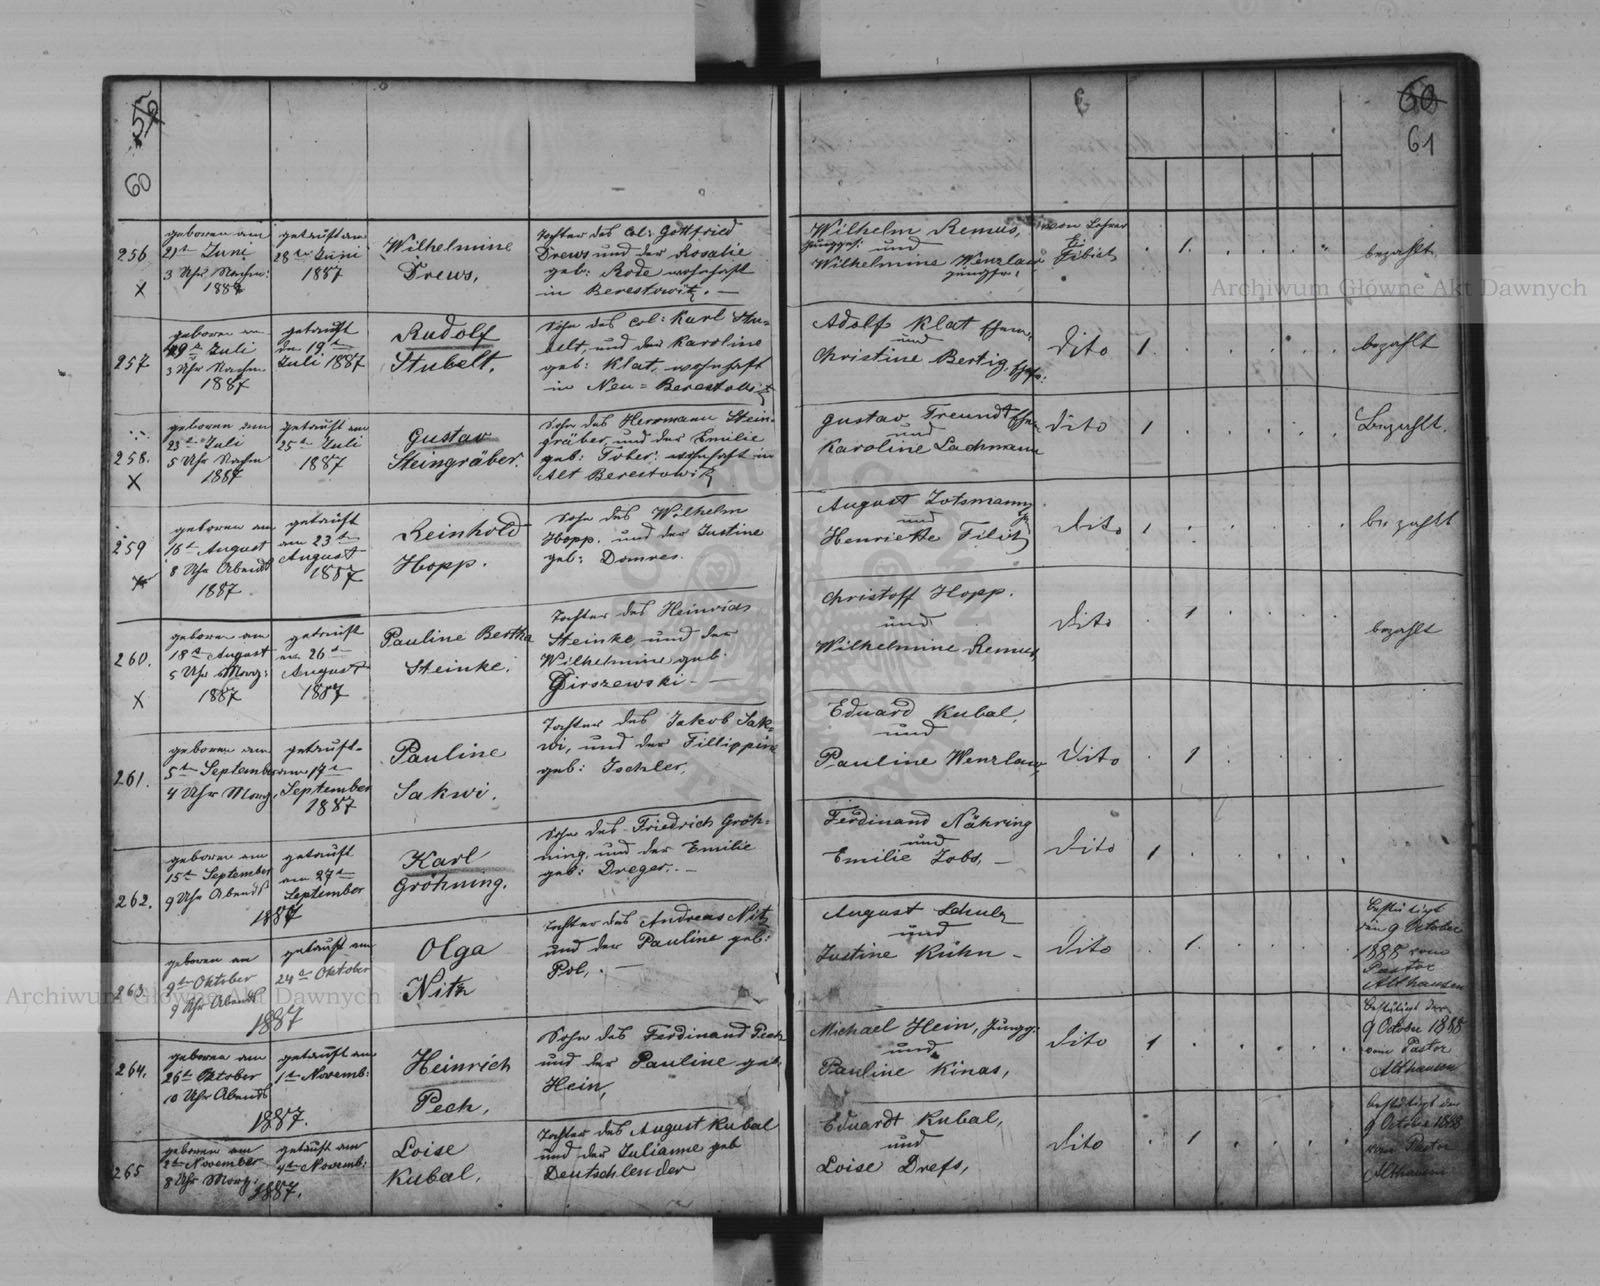 59
60
256
X
geboren am
21ten Juni
3 Uhr Nachm:
1887
getauft am
28ten Juni
1887
Wilhelmine
Drews,
Tochter des Col: Gottfried
Drews und der Rosalie
geb: Rode wohnhaft
in Berestowitz. —
257
geboren am
Juli
3 Uhr Nachm.
1887
getauft
den 19ten
Juli 1887
Rudolf
Stubelt,
Sohn des Col: Karl Stu=
belt, und der Karoline
geb: Klat, wohnhaft
in Neu = Berestowitz
258.
X
geboren am
23ten Juli
5 Uhr Nachm
1887
getauft am
25ten Juli
1887
Gustav
Steingräber.
Sohn des Herrmann Stein-
gräber, und der Emilie
geb: Tober: wohnhaft in
Alt Berestowitz
259
X
geboren am
16ten August
8 Uhr Abends
1887
getauft
am 23ten
August
1887
Reinhold
Hopp.
Sohn des Wilhelm
Hopp. und der Justine
geb: Domres.
260.
X
geboren am
18ten August
5 Uhr Morg:
1887
getauft
am 26ten
August
1887
Pauline Bertha
Steinke.
Tochter des Heinrich
Steinke, und der
Wilhelmine geb:
Dirszewski — —
261.
geboren am
5ten September
4 Uhr Morg.
getauft
am 17ten
September
1887
Pauline
Sakwi.
Tochter des Jakob Sak-
wi, und der Fillippine
geb: Ischler,
262.
geboren am
15ten September
9 Uhr Abends
getauft
am 27ten
September
1887
Karl
Gröhning.
Sohn des Friedrich Gröh-
ning, und der Emilie
geb: Dreger. —
263
geboren am
9ten Oktober
9 Uhr Abends
getauft am
24ten Oktober
1887
Olga
Nitz
Tochter des Andreas Nitz
und der Pauline geb:
Pol, . —
264.
geboren am
26ten Oktober
10 Uhr Abends
getauft am
1ten Novemb:
1887.
Heinrich
Pech,
Sohn des Ferdinand Pech
und der Pauline geb:
Hein,
265
geboren am
2ten November
8 Uhr Morg:
getauft am
4ten Novemb:
1887.
Loise
Kubal,
Tochter des August Kubal
und der Julianne geb
Deutschlender
60
61
Wilhelm Remus,
Junggs: und
Wilhelmine Wenzlaw
Jungfr:
von Lehrer
Fibich
1.
bezahlt
Adolf Klat Ehem:
und
Christine Bertig, Ehefr:
Dito
1
bezahlt
Gustav Freundt Ehem.
und
Karoline Lachmann
Dito
1
Bezahlt.
August Lotsmann
und
Henriette Filitz
Dito
1
bezahlt
Christoff Hopp.
und
Wilhelmine Remus,
Dito
1
bezahlt
Eduard Kubal,
und
Pauline Wenzlaw
Dito
1
Ferdinand Nähring
und
Emilie Jobs, —
Dito
1
August Schulz
und
Justine Kühn —
Dito
1
Bestätigt
den 9 October
1888 vom
Pastor
Althausen
Michael Hein, Jungg:
und
Pauline Kinas,
Dito
1
Bestätigt den
9 October 1888
vom Pastor
Althausen
Eduardt Kubal,
und
Loise Drefs,
Dito
1
bestätigt den
9 October 1888
vom Pastor
Althausen
Archiwum Główne Akt Dawnych
Archiwum Główne Akt Dawnych